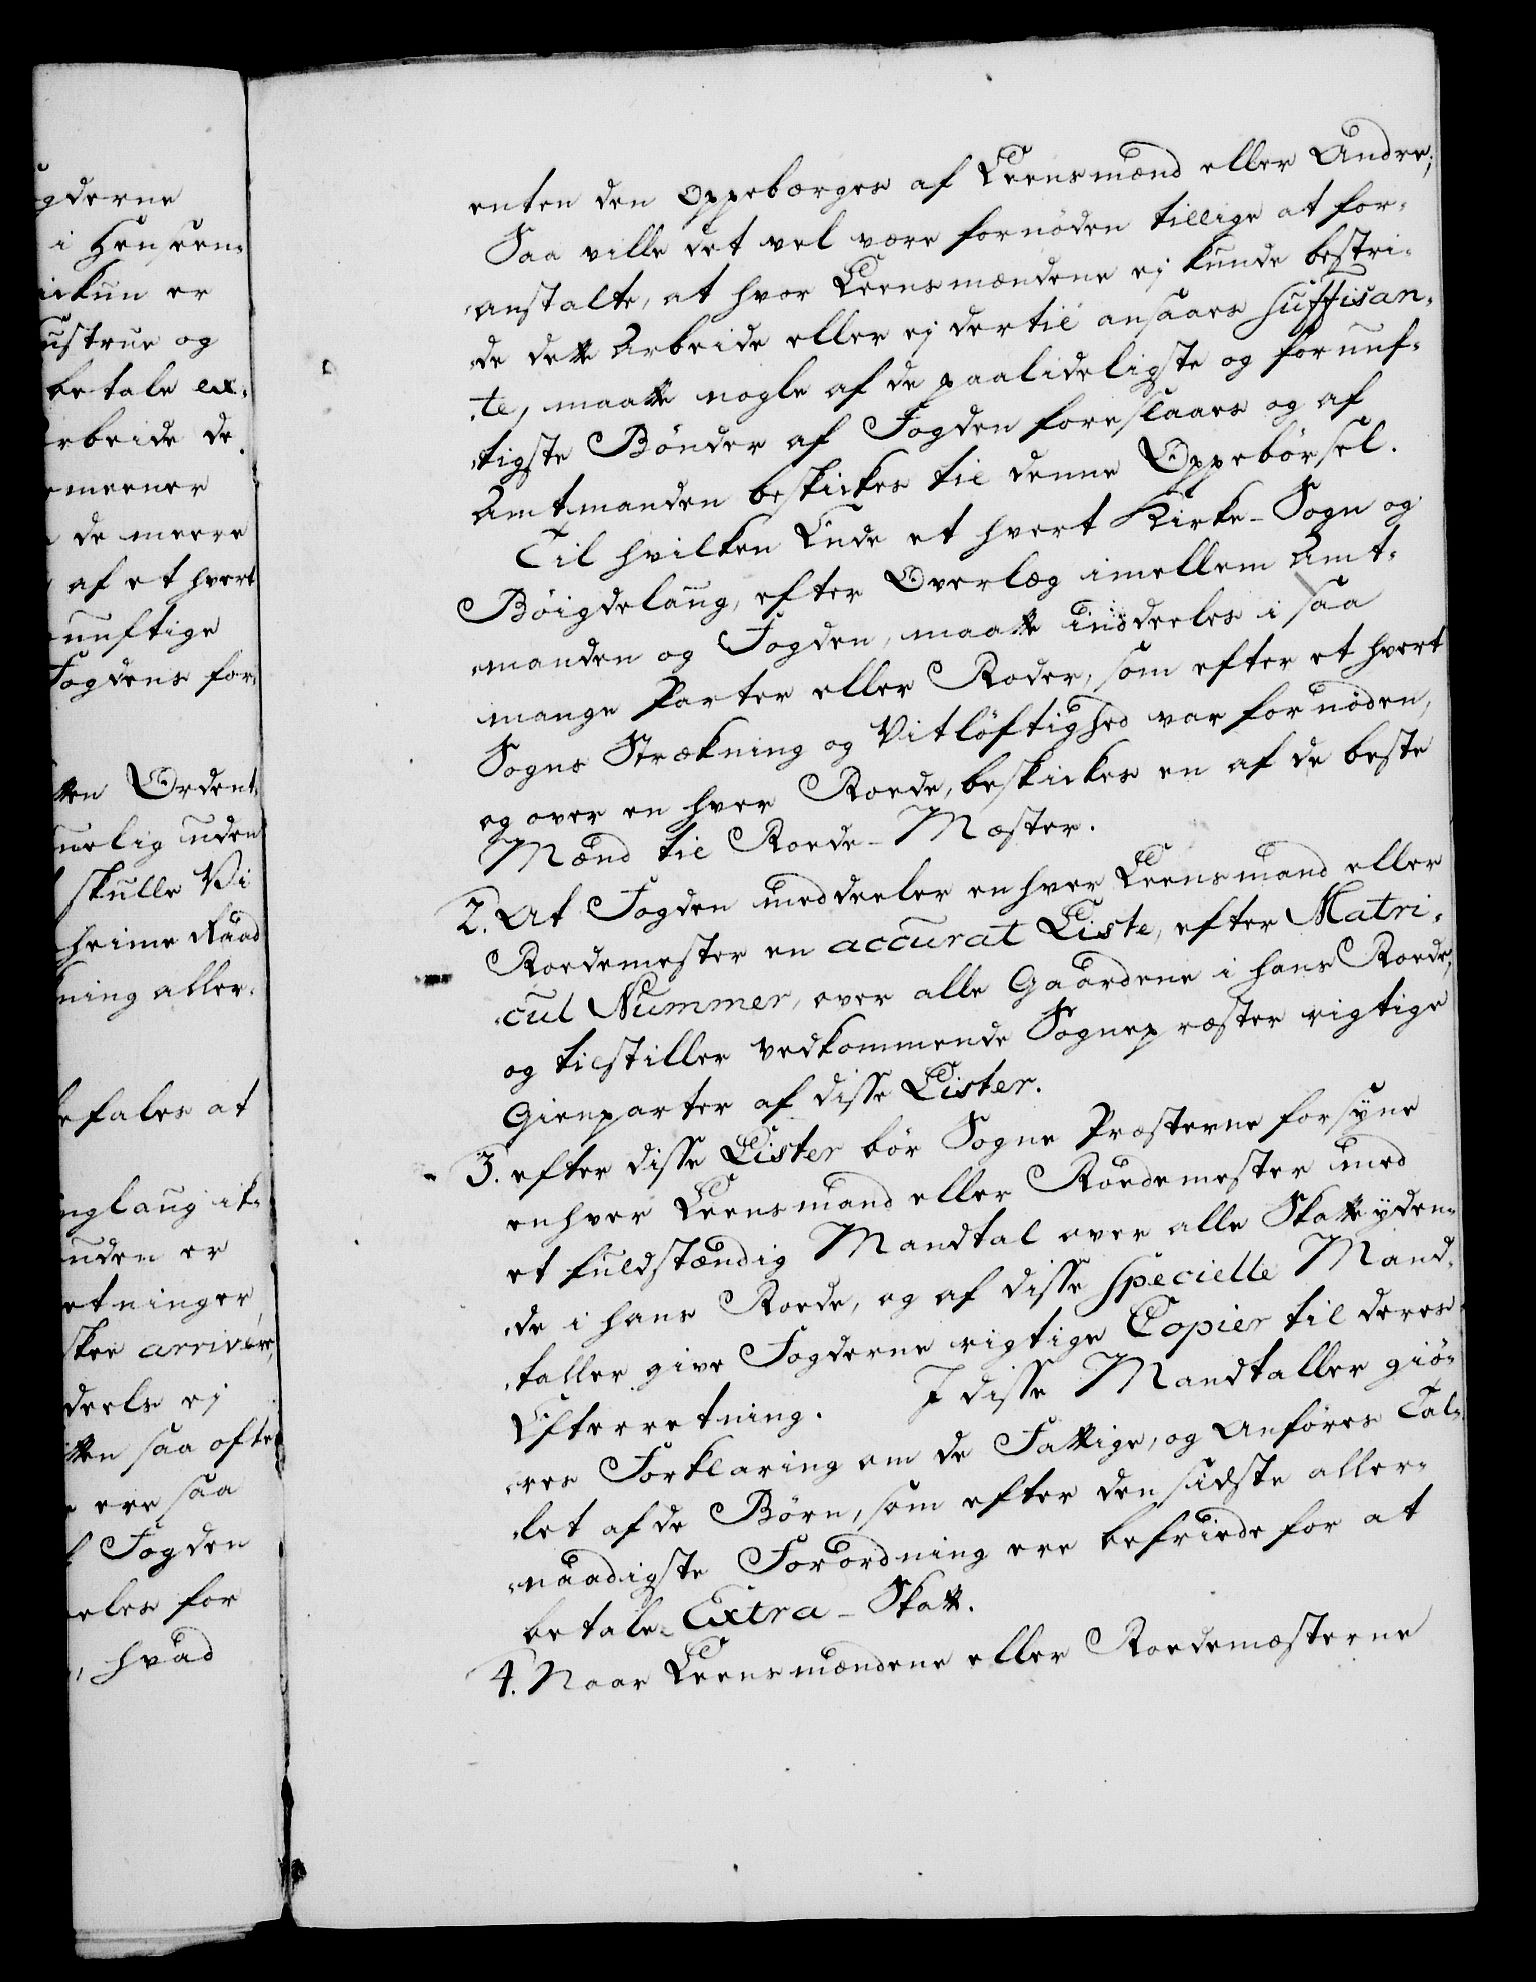 gderne
i henseen-
ickun er
ustrue og
betale ex-
rbeide de
meener
de meere
af et hvert
nunftige
Fogdens for-
tten Ordent-
uelig uden
skulle Vi
heime Raad
ning aller-
efales at
nglaug ik-
unden er
etninger
skee arrivére,
deels ej
tten saa ofte
ere saa
Fogden
eles for
, hvad
enten den oppebærges af Leensmænd eller Andre;
Saa ville det vel være fornöden tillige at for-
anstalte, at hvor Leensmændene ej kunde bestri-
de dette Arbeide eller ej dertil ansaaes suffisan-
te, maatte nogle af de paalideligste og fornuf-
tigste Bönder af Fogden foreslaaes og af
Amtmanden beskickes til denne Oppebörsel.
Til hvilken Ende et hvert Kirke-Sogn og
Böigdelaug, efter Overlæg imellem Amt-
manden og Fogden, maatte inddeeles i saa
mange Parter eller Roder, som efter et hvert
Sogns Strækning og Vitlöftighed var fornöden,
og over en hver Roede, beskickes en af de beste
Mænd til Roede-Mæster.
2. At Fogden meddeeler enhver Leensmand eller
Roedemester en accurat Liste, efter Matri-
cul Nummer, over alle Gaardene i hans Roede,
og tilstiller vedkommende Sognepræster rigtige
Gienparter af disse Lister.
3. efter disse Lister bör Sogne Præsterne forsyne
enhver Leensmand eller Roedemester med
et fuldstændig Mandtal over alle Skatteyden-
de i hans Roede, og af disse specielle Mand-
taller give Fogderne rigtige Copier til deres
Efterretning. I disse Mandtaller giö-
res Forklaring om de Fattige, og anföres Tal-
let af de Börn, som efter den sidste aller-
naadigste Forordning ere befriede for at
betale Extra-Skatt.
4. Naar Leensmændene eller Roedemæsterne